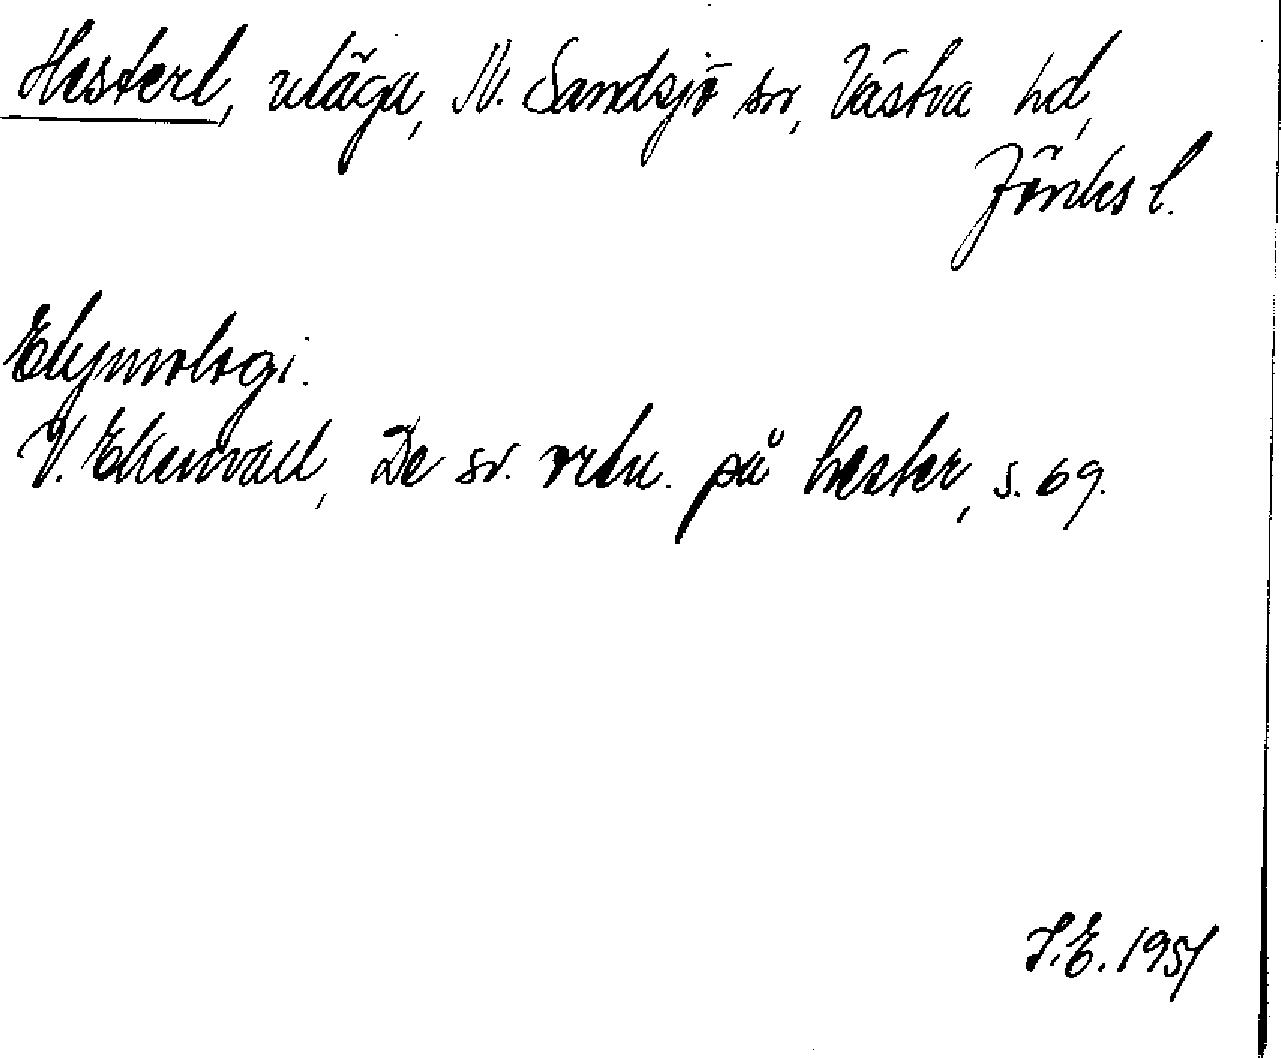 Hesterl, utäga, N. Sandsjö sn, Västra hd,
Jönks l.
Etymologi.
V. Ekenvall, De sv. ortn. på hester, s. 69.
I.E. 1951